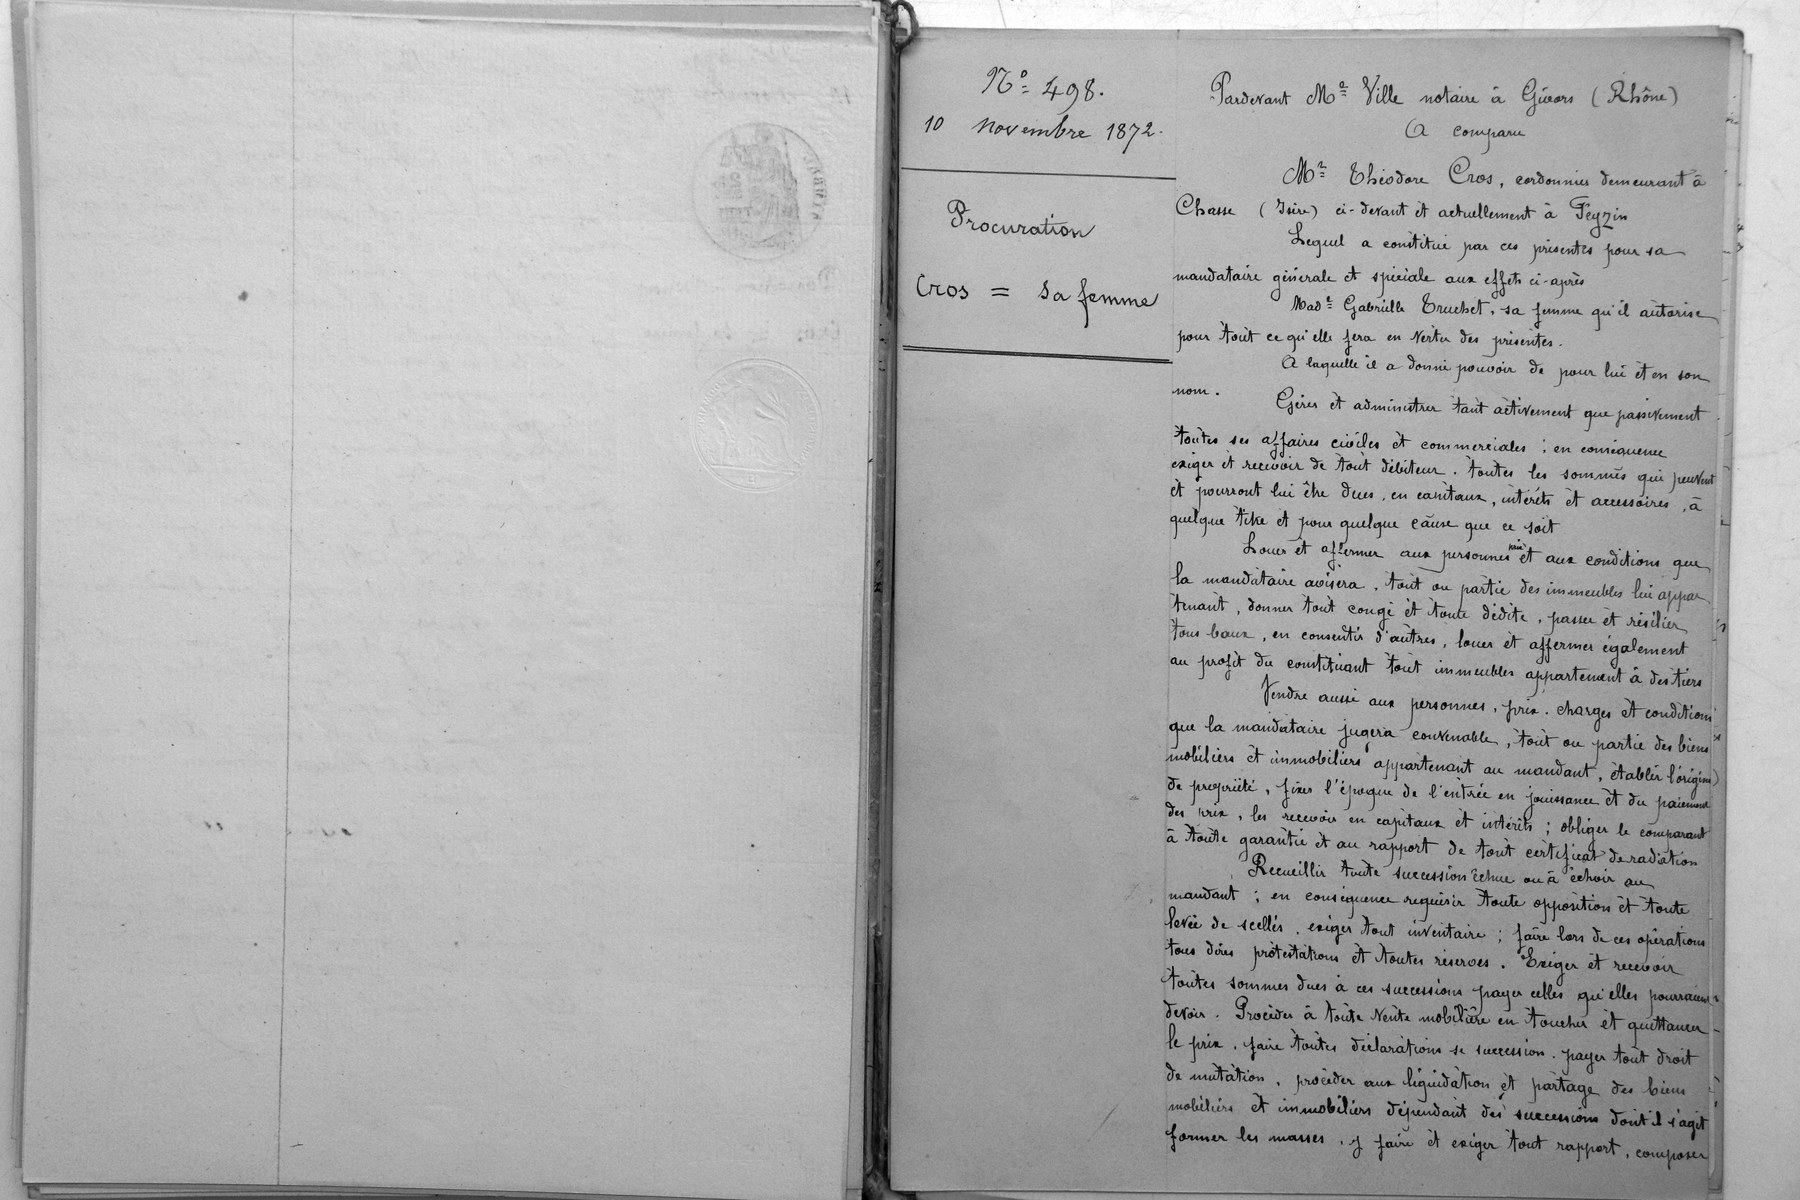 No 498.
10 novembre 1872.
Procuration
Cros = sa femme
Pardevant Me Ville notaire à Givors (Rhône)
A comparu
Mr Théodore Cros, cordonnier demeurant à
Chasse (Isère) ci-devant et actuellement à Feyzin
Lequel a constitué par ces présentes pour sa
mandataire générale et spéciale aux effets ci-après
Made Gabrielle Truchet, sa femme qu'il autorise
pour tout ce qu'elle fera en vertu des présentes.
A laquelle il a donné pouvoir de pour lui et en son
nom.
Gérer et administrer tant activement que passivement
toutes ses affaires civiles et commerciales ; en conséquence
exiger et recevoir de tout débiteur. toutes les sommes qui peuvent
et pourront lui être dues, en capitaux, intérêts et accessoires, à
quelque titre et pour quelque cause que ce soit
Louer et affermer aux personnes prix et aux conditions que
la mandataire avisera, tout ou partie des immeubles lui appar
tenant, donner tout congé et toute dédite, passer et résilier
tous baux, en consentir d'autres, louer et affermer également
au profit du constituant tout immeubles appartement à des tiers
Vendre aussi aux personnes, prix. charges et conditions
que la mandataire jugera convenable, tout ou partie des biens
mobiliers et immobiliers appartenant au mandant, établir l'origine
de propriété, fixer l'époque de l'entrée en jouissance et du paiement
des prix, les recevoir en capitaux et intérêts ; obliger le comparant
à toute garantie et au rapport de tout certificat de radiation
Recueillir toute succession échue ou à échoir au
mandant ; en conséquence requérir toute opposition et toute
levée de scellés, exiger tout inventaire ; faire lors de ces opérations
tous dires protestations et toutes réserves. Exiger et recevoir
toutes sommes dues à ces successions payer celles qu'elles pourraient
devoir. Procéder à toute vente mobilière en toucher et quittancer
le prix, faire toutes déclarations se succession. payer tout droit
de mutation, procéder aux liquidation et partage des biens
mobiliers et immobiliers dépendant des successions dont il s'agit
former les masses, y faire et exiger tout rapport, composer